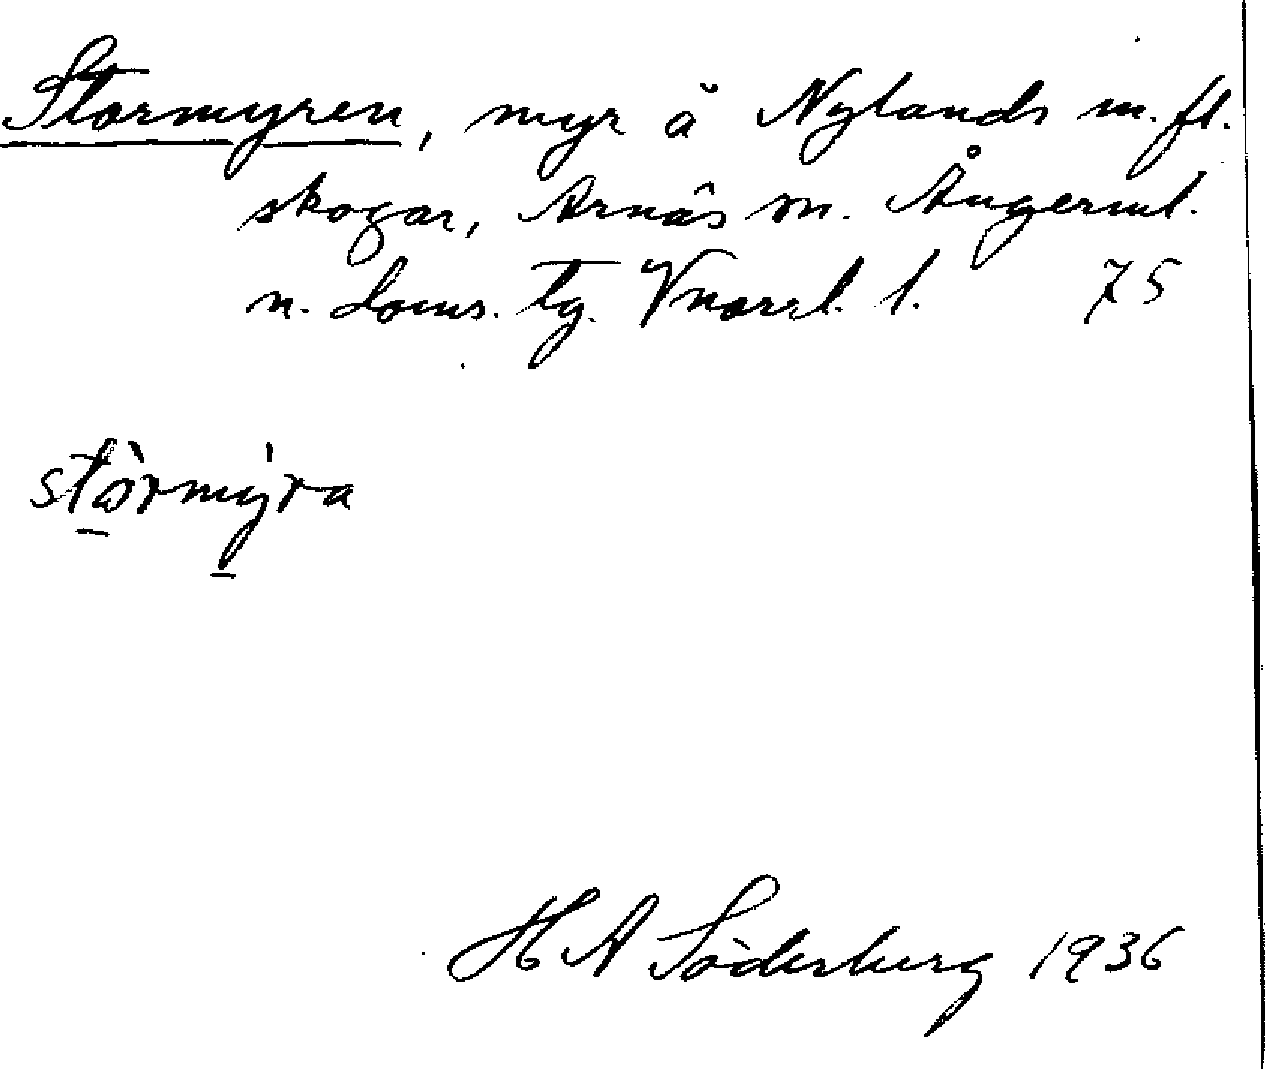 Stormyren, myr å Nylands m. fl.
skogar, Arnäs sn. Ångerml.
n. doms. tg. Vnorrl. l. 75
stòrmýra
H A Söderberg 1936